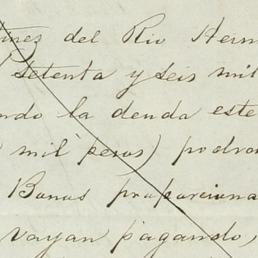 tinez del Rio Herm
setenta y seis mil
ndo la deuda este
mil pesos) podra
Bonos proporciona
vayan pagando,